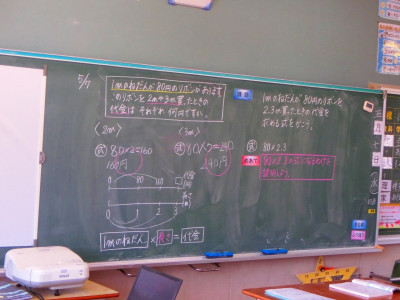 5/7
1mのねだんが80円のリボンがあります。
このリボンを2mや3m買ったときの
代金は それぞれ 何円ですか。
〈2m〉
式 80×2=160
160円
〈3m〉
式
240円
0 80 160 □ 代金(円)
0 1 2 3
1mのねだん × 長さ = 代金
1mのねだんが80円のリボンを
2.3m買ったときの代金を
求める式をかこう。
式 80×2.3
めあて
80×2.3の式になるわけを
説明しよう。